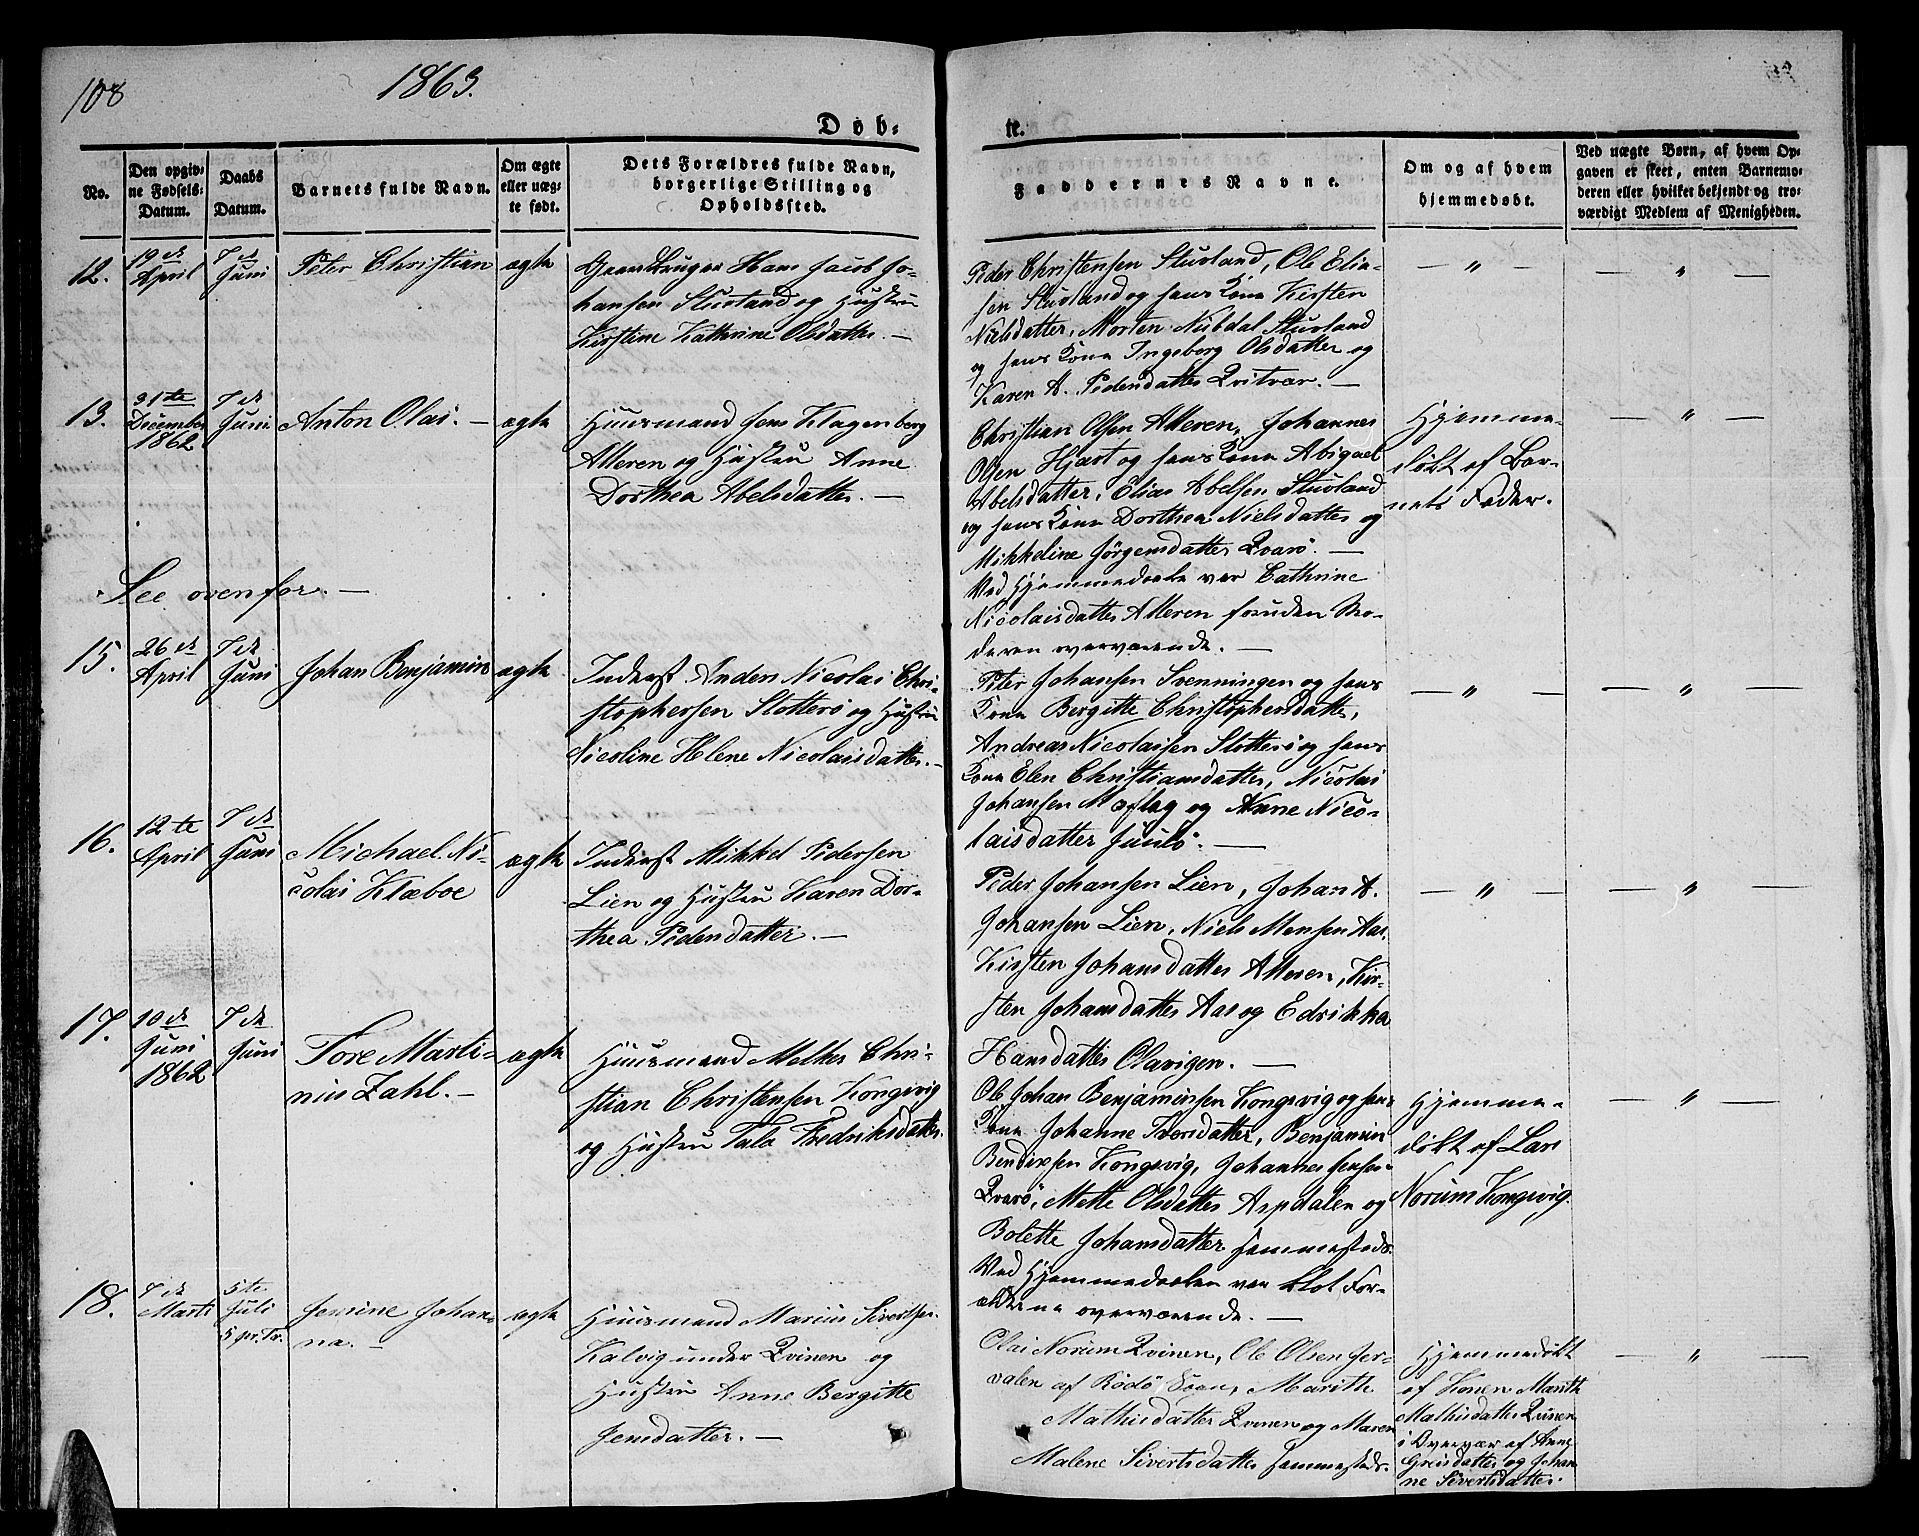 108
1863.
Døb-
te.
No.
Den opgiv-
ne Fødsels-
Datum.
Daabs
Datum.
Barnets fulde Navn.
Om ægte
eller uæg-
te født.
Dets Forældres fulde Navn,
borgerlige Stilling og
Opholdssted.
Faddernes Navne.
Om og af hvem
hjemmedøbt.
Ved uægte Børn, af hvem Op-
gaven er skeet, enten Barnemo-
deren eller hvilket bekjendt og tro-
værdigt Medlem af Menigheden.
12.
19de
April
7de
Juni
Peter Christian
ægte
Gaardbruger Hans Jacob Jo-
hansen Stuvland og Hustru
Kirstine Kathrine Olsdatter. —
Peder Christensen Stuvland, Ole Elia-
sen Stuvland og hans Kone Kirsten
Nielsdatter, Morten Nubdal Stuvland
og hans Kone Ingeborg Olsdatter og
Karen A. Pedersdatter Qvitvær. —
— " —
— " —
13.
31te
December
1862
7de
Juni
Anton Olai. —
ægte
Huusmand Jens Klagenberg
Alteren og Hustru Anne
Dorthea Abelsdatter. —
Christian Olsen Alteren, Johannes
Olsen Hjart og hans Kone Abigael
Abelsdatter, Elias Abelsen Stuvland
og hans Kone Dorthea Nielsdatter og
Mikkeline Jørgensdatter Qvarø. —
Ved Hjemmedaaben var Cathrine
Nicolaisdatter Alteren foruden Mo-
deren overværende. —
Hjemme-
døbt af Bar-
nets Fader.
— " —
See ovenfor. —
15.
26de
April
7de
Juni
Johan Benjamin
ægte
Inderst Anders Nicolai Chri-
stophersen Slotterø og Hustru
Nicoline Helene Nicolaisdatter. —
Peter Johansen Svenningen og hans
Kone Bergitte Christophersdatter,
Andreas Nicolaisen Slotterø og hans
Kone Elen Christiansdatter, Nicolai
Johansen Moflag og Anne Nico-
laisdatter —
— " —
— " —
16.
12te
April
7de
Juni
Michael Ni-
colai Klæboe
ægte
Inderst Mikkel Pedersen
Lien og Hustru Karen Dor-
thea Pedersdatter. —
Peder Johansen Lien, Johan A.
Johansen Lien, Niels Monsen Aas,
Kirsten Johansdatter Alteren, Kir-
sten Johansdatter Aas og Edrikka
Hansdatter Olavigen. —
— " —
— " —
17.
10de
Juni
1862
7de
Juni
Tore Marti-
nius Zahl. —
ægte
Huusmand Melker Chri-
stian Christensen Kongsvig
og Hustru Tala Fredriksdatter.
Ole Johan Benjaminsen Kongsvig og hans
Kone Johanne Toresdatter, Benjamin
Bendixsen Kongsvig, Johannes Jensen
Qvarø, Mette Olsdatter Aspdalen og
Bolette Johansdatter sammesteds.
Ved Hjemmedaaben var blot For-
ældrene overværende. —
Hjemme-
døbt af Lars
Norum Kongsvig.
— " —
18.
7de
Marts
5te
Juli
5 p. Tr.
Jensine Johan-
na. —
ægte
Huusmand Marius Sivertsen
Kalvig under Qvinen og
Hustru Anne Bergitte
Jensdatter. —
Olai Norum Qvinen, Ole Olsen Jer-
valen af Rødø Sogn, Marith
Mathisdatter Qvinen og Maren
Malene Sivertsdatter sammesteds.
Hjemmedøbt
af Konen Marith
Mathisdatter Qvinen
i Overvær af Anne
Greisdatter og Johan-
ne Sivertsdatter.
— " —